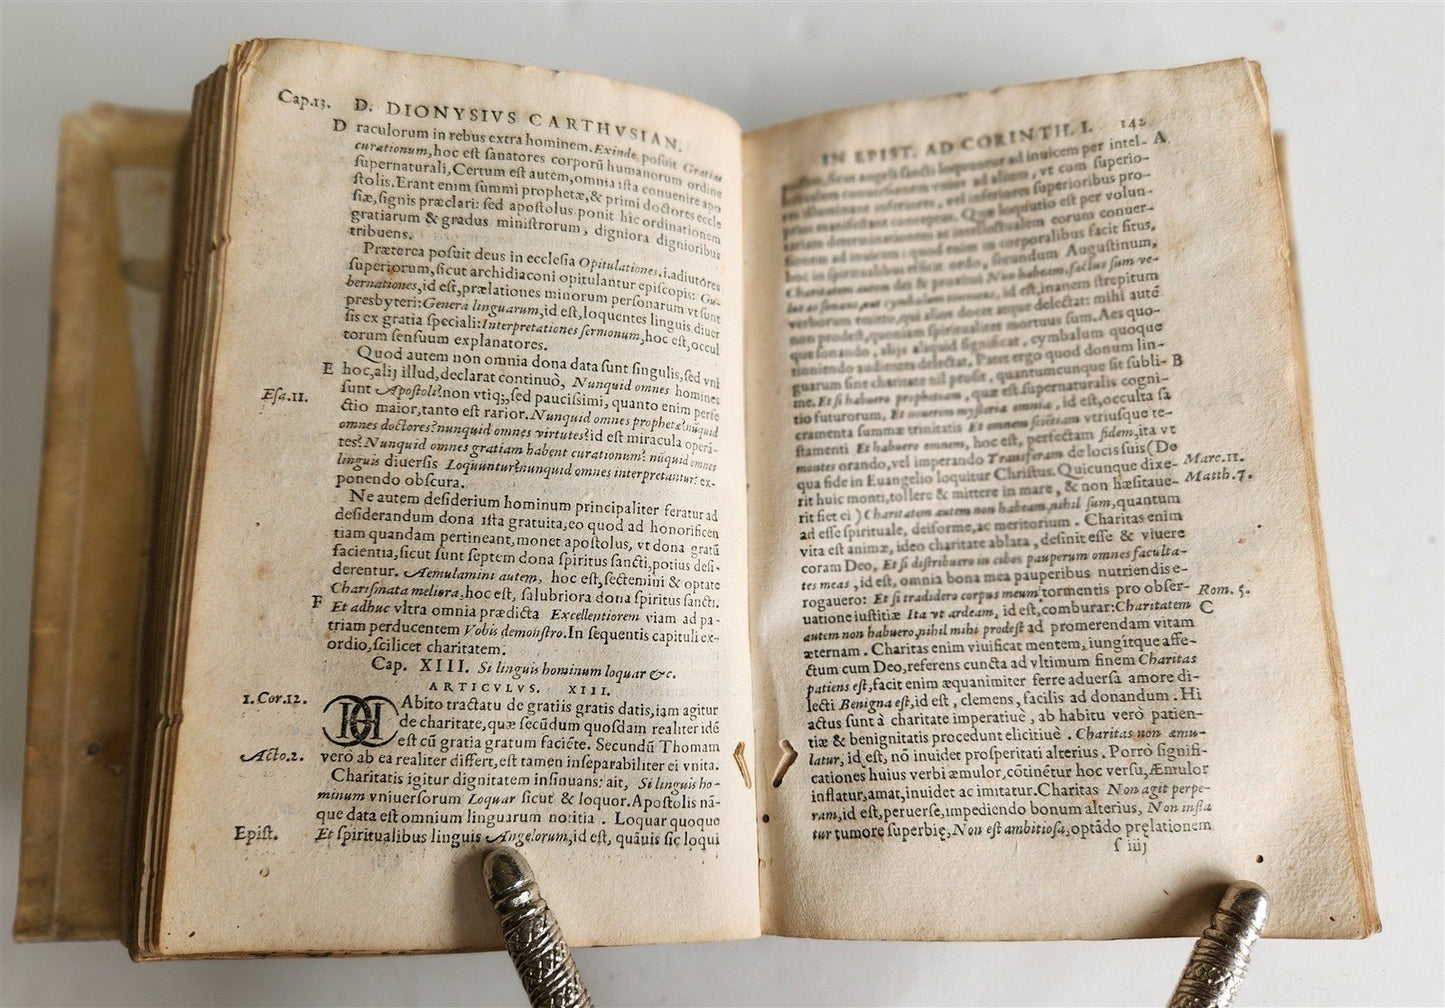 Cap.13. D. DIONYSIVS CARTHVSIAN.
D raculorum in rebus extra hominem. Exinde posuit Gratias
curationum, hoc est sanatores corporū humanorum ordine
supernaturali, Certum est autem, omnia ista conuenire apo
stolis. Erant enim summi prophetæ, & primi doctores eccle
siæ, signis præclari: sed apostolus ponit hic ordinationem
gratiarum & gradus ministrorum, digniora dignioribus
tribuens.
Præterea posuit deus in ecclesia Opitulationes. i. adiutores
superiorum, sicut archidiaconi opitulantur episcopis: Gu-
bernationes, id est, prælationes minorum personarum vt sunt
presbyteri: Genera linguarum, id est, loquentes linguis diuer
sis ex gratia speciali: Interpretationes sermonum, hoc est, occul
torum sensuum explanatores.
Quod autem non omnia dona data sunt singulis, sed vni
E hoc, alij illud, declarat continuò, Nunquid omnes homines
Esa.11. sunt Apostoli? non vtiq;, sed paucissimi, quanto enim perfe
ctio maior, tanto est rarior. Nunquid omnes prophetæ? nūquid
omnes doctores? nunquid omnes virtutes? id est miracula operā-
tes? Nunquid omnes gratiam habent curationum? nūquid omnes
linguis diuersis Loquuntur? nunquid omnes interpretantur? ex-
ponendo obscura.
Ne autem desiderium hominum principaliter feratur ad
desiderandum dona ista gratuita, eo quod ad honorificen
tiam quandam pertineant, monet apostolus, vt dona gratū
facientia, sicut sunt septem dona spiritus sancti, potius desi-
derentur. Aemulamini autem, hoc est, sectemini & optate
Charismata meliora, hoc est, salubriora dona spiritus sancti.
F Et adhuc vltra omnia prædicta Excellentiorem viam ad pa-
triam perducentem Vobis demonstro. In sequentis capituli ex-
ordio, scilicet charitatem.
Cap. XIII. Si linguis hominum loquar &c.
ARTICVLVS. XIII.
1. Cor.12. HAbito tractatu de gratiis gratis datis, iam agitur
de charitate, quæ secūdum quosdam realiter idē
est cū gratia gratum faciēte. Secundū Thomam
Acto.2. verò ab ea realiter differt, est tamen inseparabiliter ei vnita.
Charitatis igitur dignitatem insinuans: ait, Si linguis ho-
minum vniuersorum Loquar sicut & loquor. Apostolis nā-
que data est omnium linguarum notitia. Loquar quoque
Epist. Et spiritualibus linguis Angelorum, id est, quāuis sic loqui
IN EPIST. AD CORINTH. I. 142
sicut angeli sancti loquuntur ad inuicem per intel- A
conuersionem vnius ad alium, vt cum superio-
res illuminant inferiores, vel inferiores superioribus pro-
prios manifestant conceptus. Quæ loquutio est per volun-
tariam determinationem ac intellectualem eorum conuer-
sionem ad inuicem: quod enim in corporalibus facit situs,
hoc in spiritualibus efficit ordo, secundum Augustinum,
Charitatem autem dei & proximi Non habeam, factus sum ve-
lut æs sonans, aut cymbalum tinniens, id est, inanem strepitum
verborum emitto, qui alios docet atque delectat: mihi autē
non prodest, quoniam spiritualiter mortuus sum. Aes quo-
que sonando, alijs aliquid significat, cymbalum quoque
tinniendo audientes delectat. Patet ergo quod donum lin-
guarum sine charitate nil prosit, quantumcunque sit subli- B
me. Et si habuero prophetiam, quæ est supernaturalis cogni-
tio futurorum, Et nouerim mysteria omnia, id est, occulta sa
cramenta summæ trinitatis Et omnem scientiam vtriusque te-
stamenti Et habuero omnem, hoc est, perfectam fidem, ita vt
montes orando, vel imperando Transferam de locis suis (De
qua fide in Euangelio loquitur Christus. Quicunque dixe- Marc.11.
rit huic monti, tollere & mittere in mare, & non hæsitaue- Matth.7.
rit fiet ei) Charitatem autem non habeam, nihil sum, quantum
ad esse spirituale, deiforme, ac meritorium. Charitas enim
vita est animæ, ideo charitate ablata, desinit esse & viuere
coram Deo, Et si distribuero in cibos pauperum omnes faculta-
tes meas, id est, omnia bona mea pauperibus nutriendis e-
rogauero: Et si tradidero corpus meum tormentis pro obser- Rom. 5.
uatione iustitiæ Ita vt ardeam, id est, comburar: Charitatem C
autem non habuero, nihil mihi prodest ad promerendam vitam
æternam. Charitas enim viuificat mentem, iungítque affe-
ctum cum Deo, referens cuncta ad vltimum finem Charitas
patiens est, facit enim æquanimiter ferre aduersa amore di-
lecti Benigna est, id est, clemens, facilis ad donandum. Hi
actus sunt à charitate imperatiuè, ab habitu verò patien-
tiæ & benignitatis procedunt elicitiuè. Charitas non æmu-
latur, id est, nō inuidet prosperitati alterius. Porrò signifi-
cationes huius verbi æmulor, cōtinētur hoc versu, Æmulor
inflatur, amat, inuidet ac imitatur. Charitas Non agit perpe-
ram, id est, peruerse, impediendo bonum alterius, Non infla
tur tumore superbię, Non est ambitiosa, optādo pręlationem
s iiij